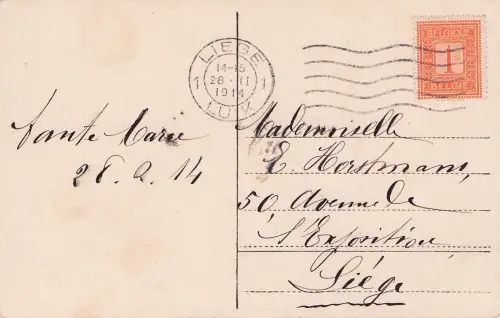 LIEGE
1 14-15 1
28 · II
1914
LUIK
BELGIQUE
1
BELGIË
tante Marie
28.2.14
Mademoiselle
E. Horstmans,
50, Avenue de
l'Exposition,
Liège